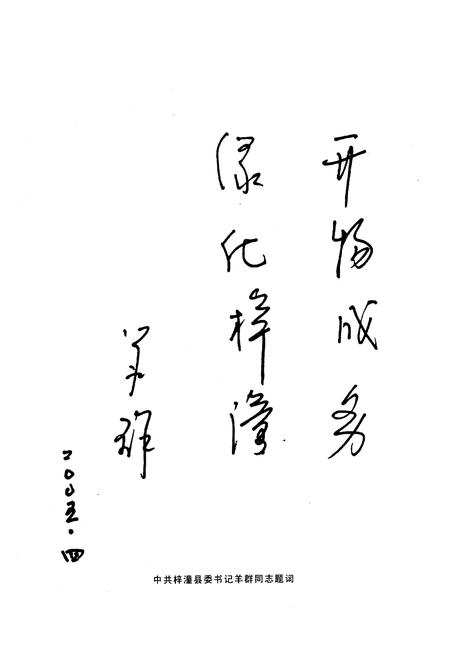 开物成务
绿化梓潼
羊群
二〇〇五·四
中共梓潼县委书记羊群同志题词